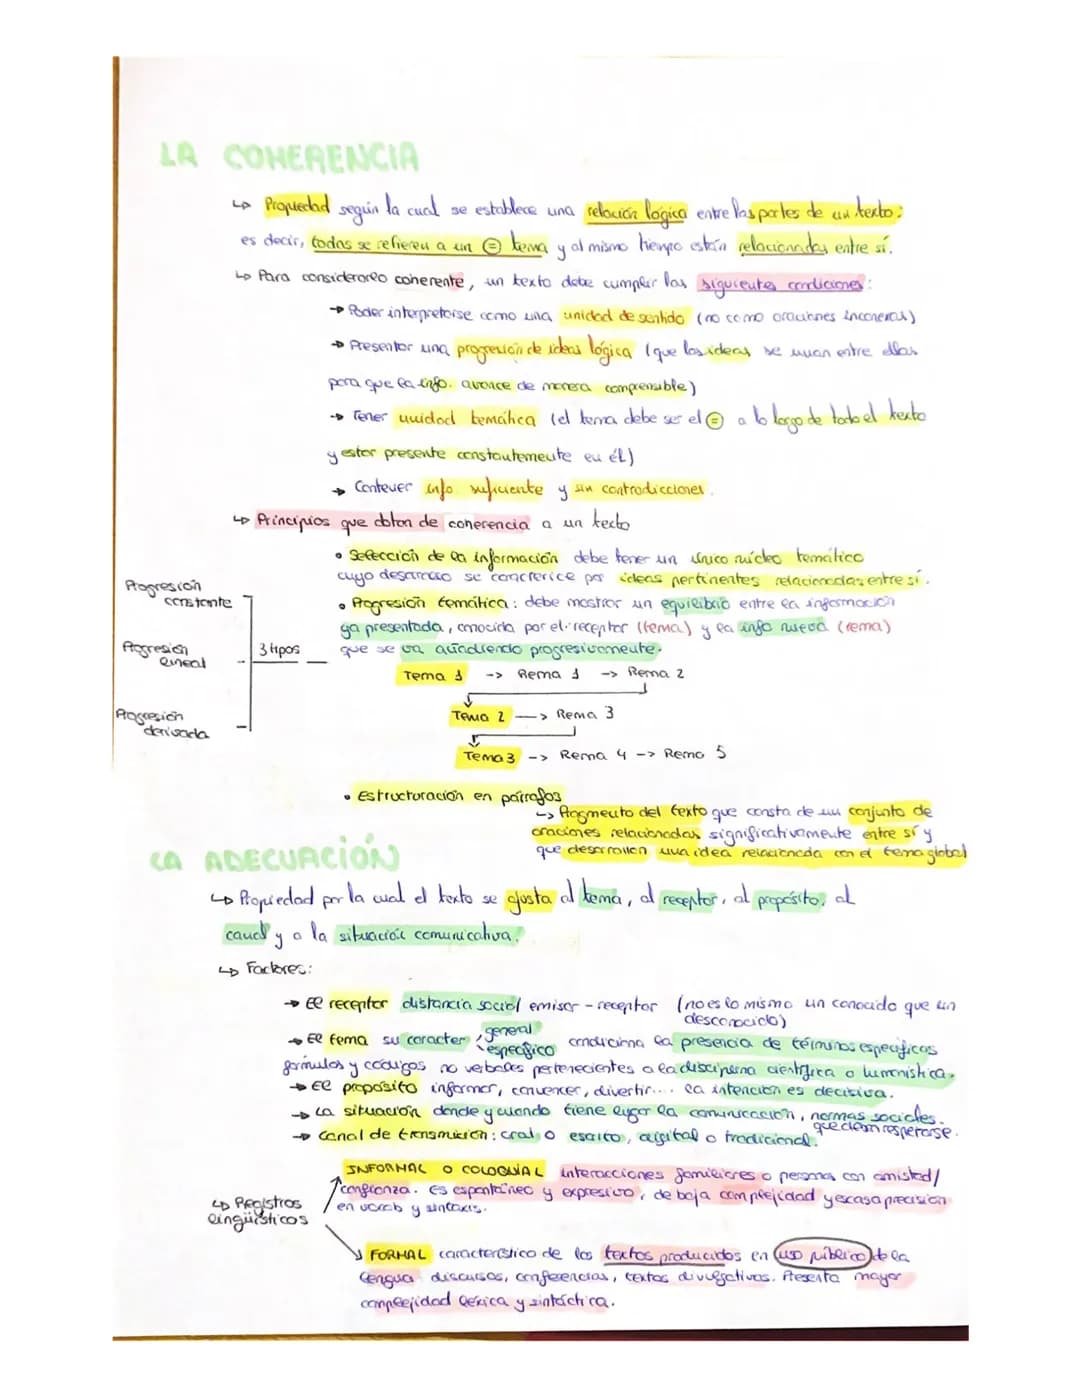 LA COHERENCIA
↳ Propiedad según la cual se establece una relación lógica entre las partes de un texto;
es decir, todas se refieren a un = tema y al mismo tiempo están relacionadas entre sí.
↳ Para considerarlo coherente, un texto debe cumplir las siguientes condiciones:
→ Poder interpretarse como una unidad de sentido (no como oraciones inconexas)
→ Presentar una progresión de ideas lógica (que las ideas se unan entre ellas
para que la info. avance de manera comprensible)
→ Tener unidad temática (el tema debe ser el = a lo largo de todo el texto
y estar presente constantemente en él)
→ Contener info suficiente y sin contradicciones.
↳ Principios que dotan de coherencia a un texto
• Selección de la información debe tener un único núcleo temático
cuyo desarrollo se caracterice por ideas pertinentes relacionadas entre sí.
• Progresión temática: debe mostrar un equilibrio entre la información
ya presentada, conocida por el receptor (tema) y la info nueva (rema)
que se va añadiendo progresivamente.
Progresión
constante
Progresión
lineal
Progresión
derivada
3 tipos
Tema 1 -> Rema 1 -> Rema 2
Tema 2 -> Rema 3
Tema 3 -> Rema 4 -> Rema 5
• Estructuración en párrafos
↳ Fragmento del texto que consta de un conjunto de
oraciones relacionadas significativamente entre sí y
que desarrollan una idea relacionada con el tema global
LA ADECUACIÓN
↳ Propiedad por la cual el texto se ajusta al tema, al receptor, al propósito, al
canal y a la situación comunicativa.
↳ Factores:
→ El receptor distancia social emisor - receptor (no es lo mismo un conocido que un
desconocido)
→ El tema su caracter general
específico condiciona la presencia de términos específicos
fórmulas y códigos no verbales pertenecientes a la disciplina científica o humanística.
→ El propósito informar, convencer, divertir... la intención es decisiva.
→ La situación donde y cuando tiene lugar la comunicación, normas sociales.
que deben respetarse.
→ Canal de transmisión: oral o escrito, digital o tradicional.
↳ Registros
lingüísticos
INFORMAL O COLOQUIAL interacciones familiares o personas con amistad/
confianza. Es espontáneo y expresivo, de baja complejidad y escasa precisión
en vocab y sintaxis.
FORMAL característico de los textos producidos en uso público de la
lengua discursos, conferencias, textos divulgativos. Presenta mayor
complejidad léxica y sintáctica.